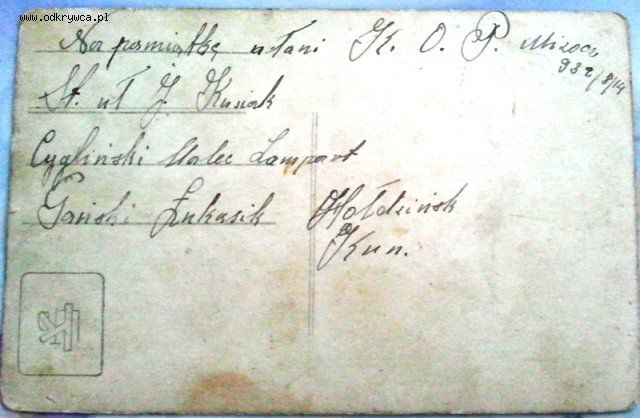 www.odkrywca.pl
Na pamiątkę ułani K. O. P. Mizocz
932/8/14
St. uł J. Kusiak
Cygliński Malec Lampart
Pański Łukasik Hołdzińsk
Kun.